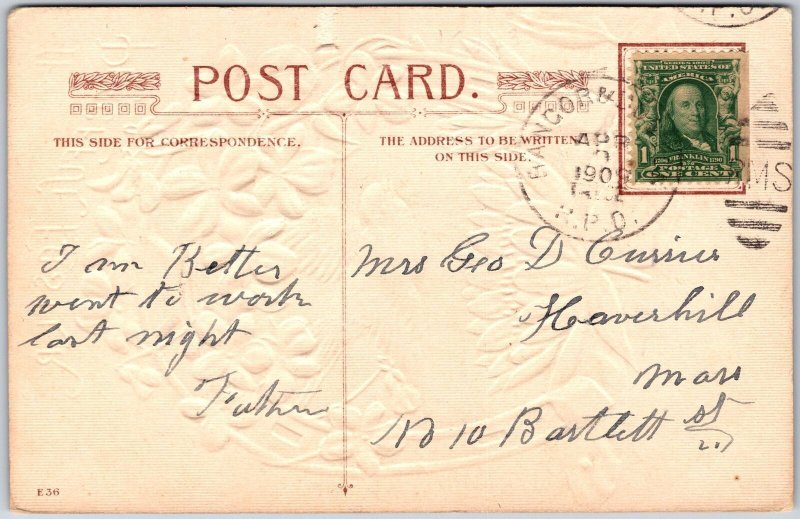 POST CARD.
THIS SIDE FOR CORRESPONDENCE.
THE ADDRESS TO BE WRITTEN
ON THIS SIDE.
SERIES 1902
UNITED STATES OF
AMERICA
1 FRANKLIN 1
POSTAGE
ONE CENT
BANGOR &
APR
190
R.P.O.
RMS
R.P.O.
I am Better
went to work
last night
Father
Mrs Geo D Currier
Haverhill
Mass
No 10 Bartlett St
E 36